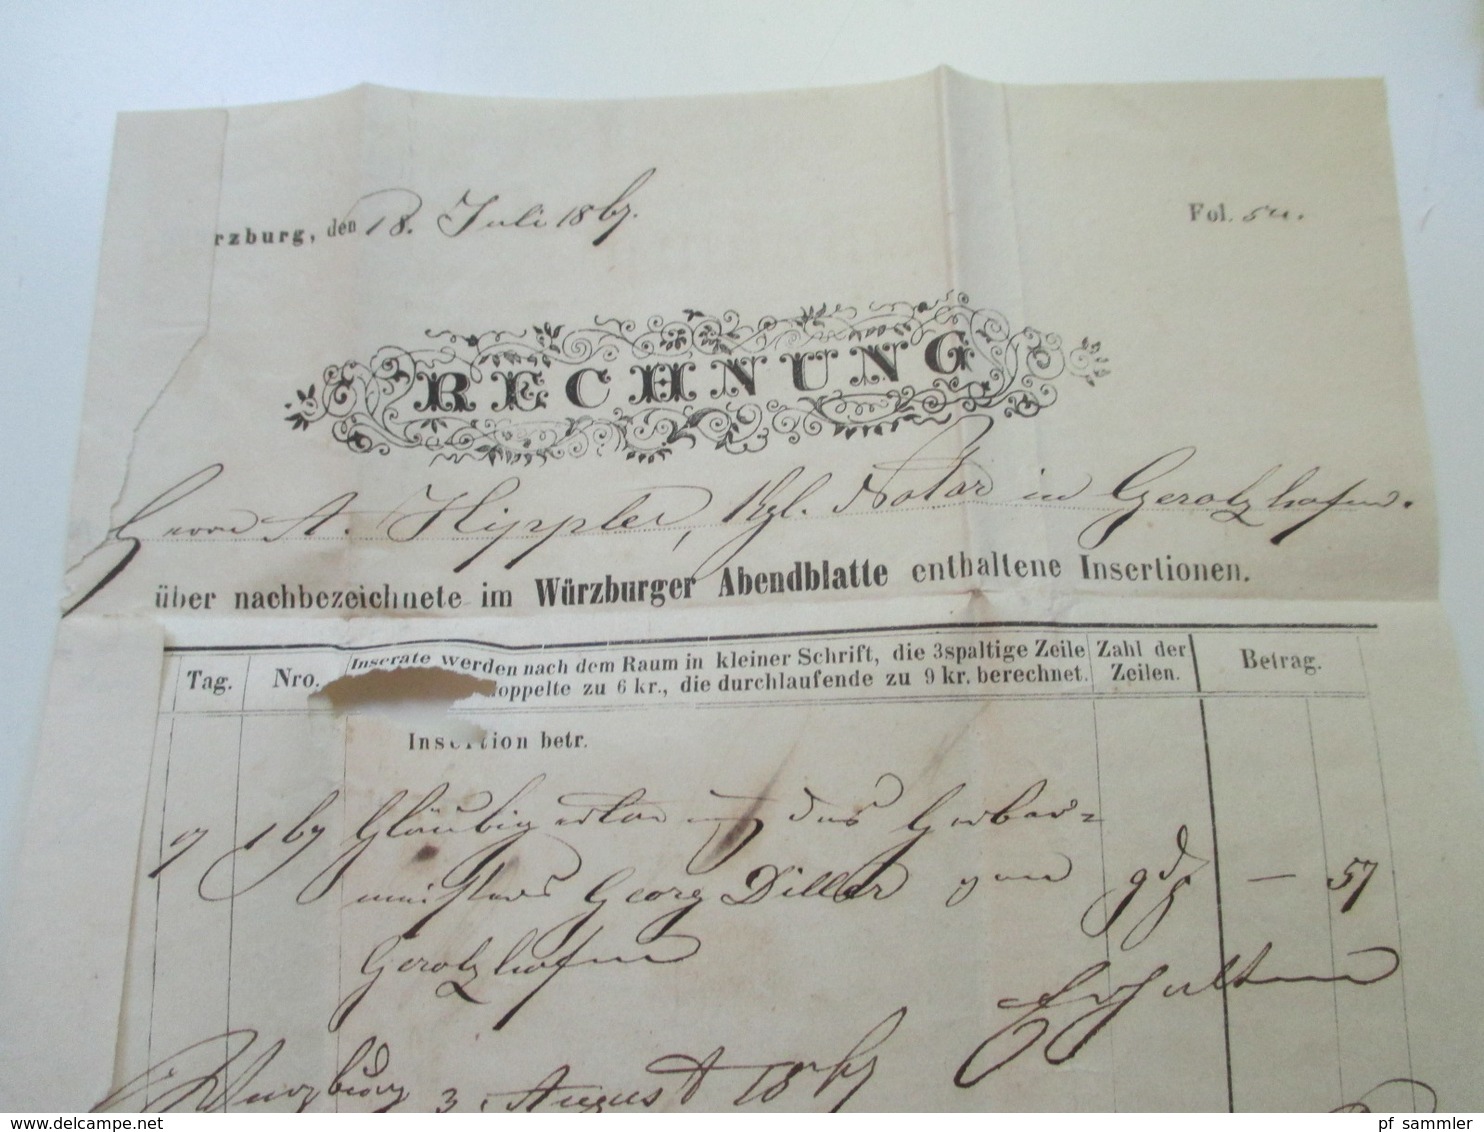 rzburg, den 18. Juli 1867.
Fol. 54.
RECHNUNG
Herrn A. Hippler, kgl. Notar in Gerolzhofen.
über nachbezeichnete im Würzburger Abendblatte enthaltene Insertionen.
Tag. Nro. Inserate werden nach dem Raum in kleiner Schrift, die 3spaltige Zeile Zahl der Zeilen. Betrag.
oppelte zu 6 kr., die durchlaufende zu 9 kr. berechnet.
Insertion betr.
167 Gläubiger des Gerber=
meisters Georg Diller von 57
Gerolzhofen
Erhalten
Würzburg 3 August 1867
pf_sammler